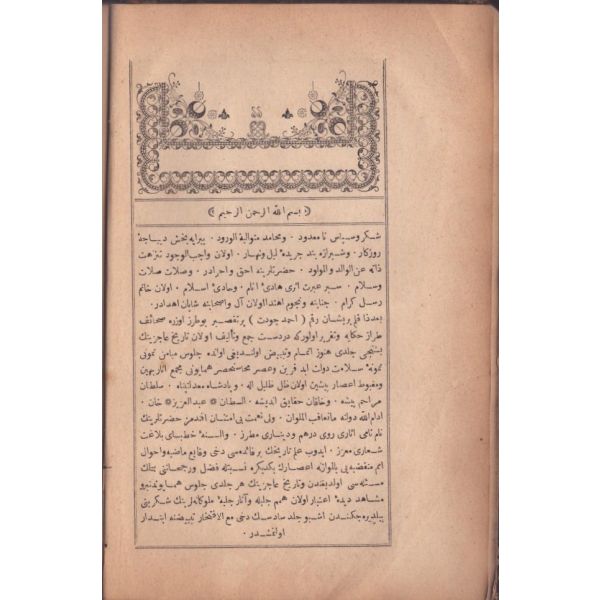 بسم الله الرحمن الرحيم
شكر وسپاس نا معدود · ومحامد متوالية الورود · پيرايه بخش ديباجهٔ
روزكار · وشيرازه بند جريدهٔ ليل ونهار · اولان واجب الوجود تنزهت
ذاته عن الوالد والمولود · حضرتلرينه احق واحرادر · وصلات صلات
وسلام · سبر عبرت اثرى هادئ انام · ومبادئ اسلام · اولان خاتم
رسل كرام · جنابنه ونجوم اهتدا اولان آل واصحابنه شايان اهدادر ·
بعدذا قلم پريشان رقم ( احمد جودت ) پر تقصير بو طرز اوزره صحائف
طراز حكايه وتقرير اولوركه دردست جمع وتأليف اولان تاريخ عاجزينك
بشنجى جلدى هنوز اتمام وتبييض اولنديغى اوانده جلوس ميامن نمونى
نمونهٔ سلامت دولت ابد قرين وعصر محاسنحصر همايونى مجمع آثار بهين
ومغبوط اعصار پيشين اولان ظل ظليل اله · وپادشاه معدلتپناه · سلطان
مراحم پيشه · وخاقان حقايق انديشه · السلطان عبد العزيز خان ·
ادام الله دولته ماتعاقب الملوان · ولى نعمت بى امتنان افندمز حضرتلرينك
نام نامى آثارى روى درهم ودينارى مطرز · والسنهٔ خطباى بلاغت
شعارى معزز · ايدوب علم تاريخك بر فائده سى دخى وقايع ماضيه واحوال
امم منقضيه يى بالموازنه اعصارك يكديكره نسبتله فضل ورجحاننى بيلمك
مسئله سى اولديغندن وتاريخ عاجزينك هر جلدى جلوس همايوندنبرو
مشاهد ديدهٔ اعتبار اولان همم جليله وآثار جليهٔ ملوكانه لرينك شكرينى
بيلديره جكندن اشبو جلد سادسك دخى مع الافتخار تبييضنه ابتدار
اولنمشدر ·